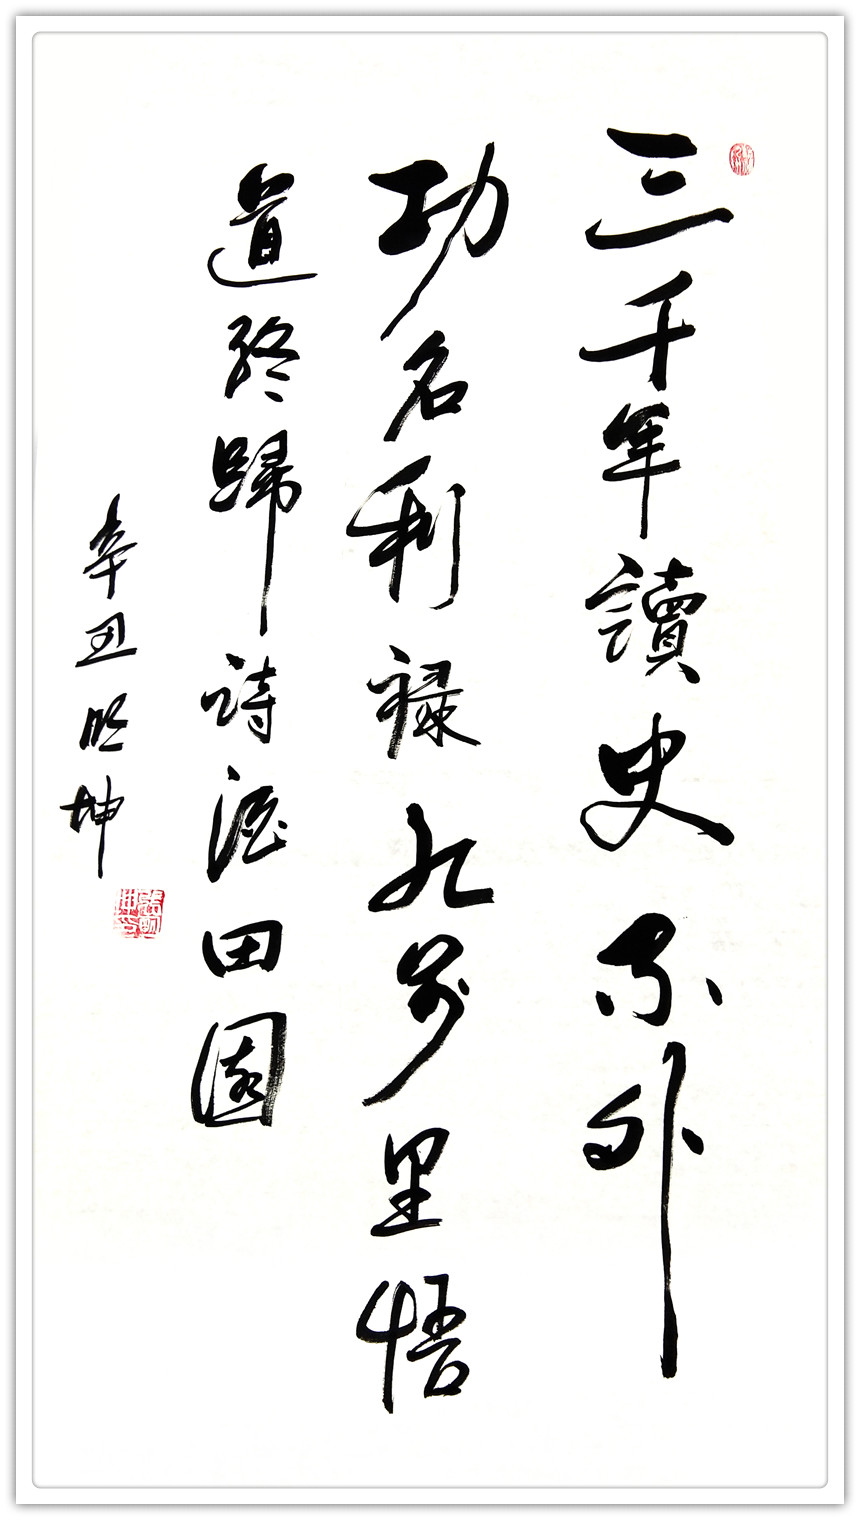 三千年讀史不外
功名利禄九万里悟
道終歸詩酒田園
辛丑明坤